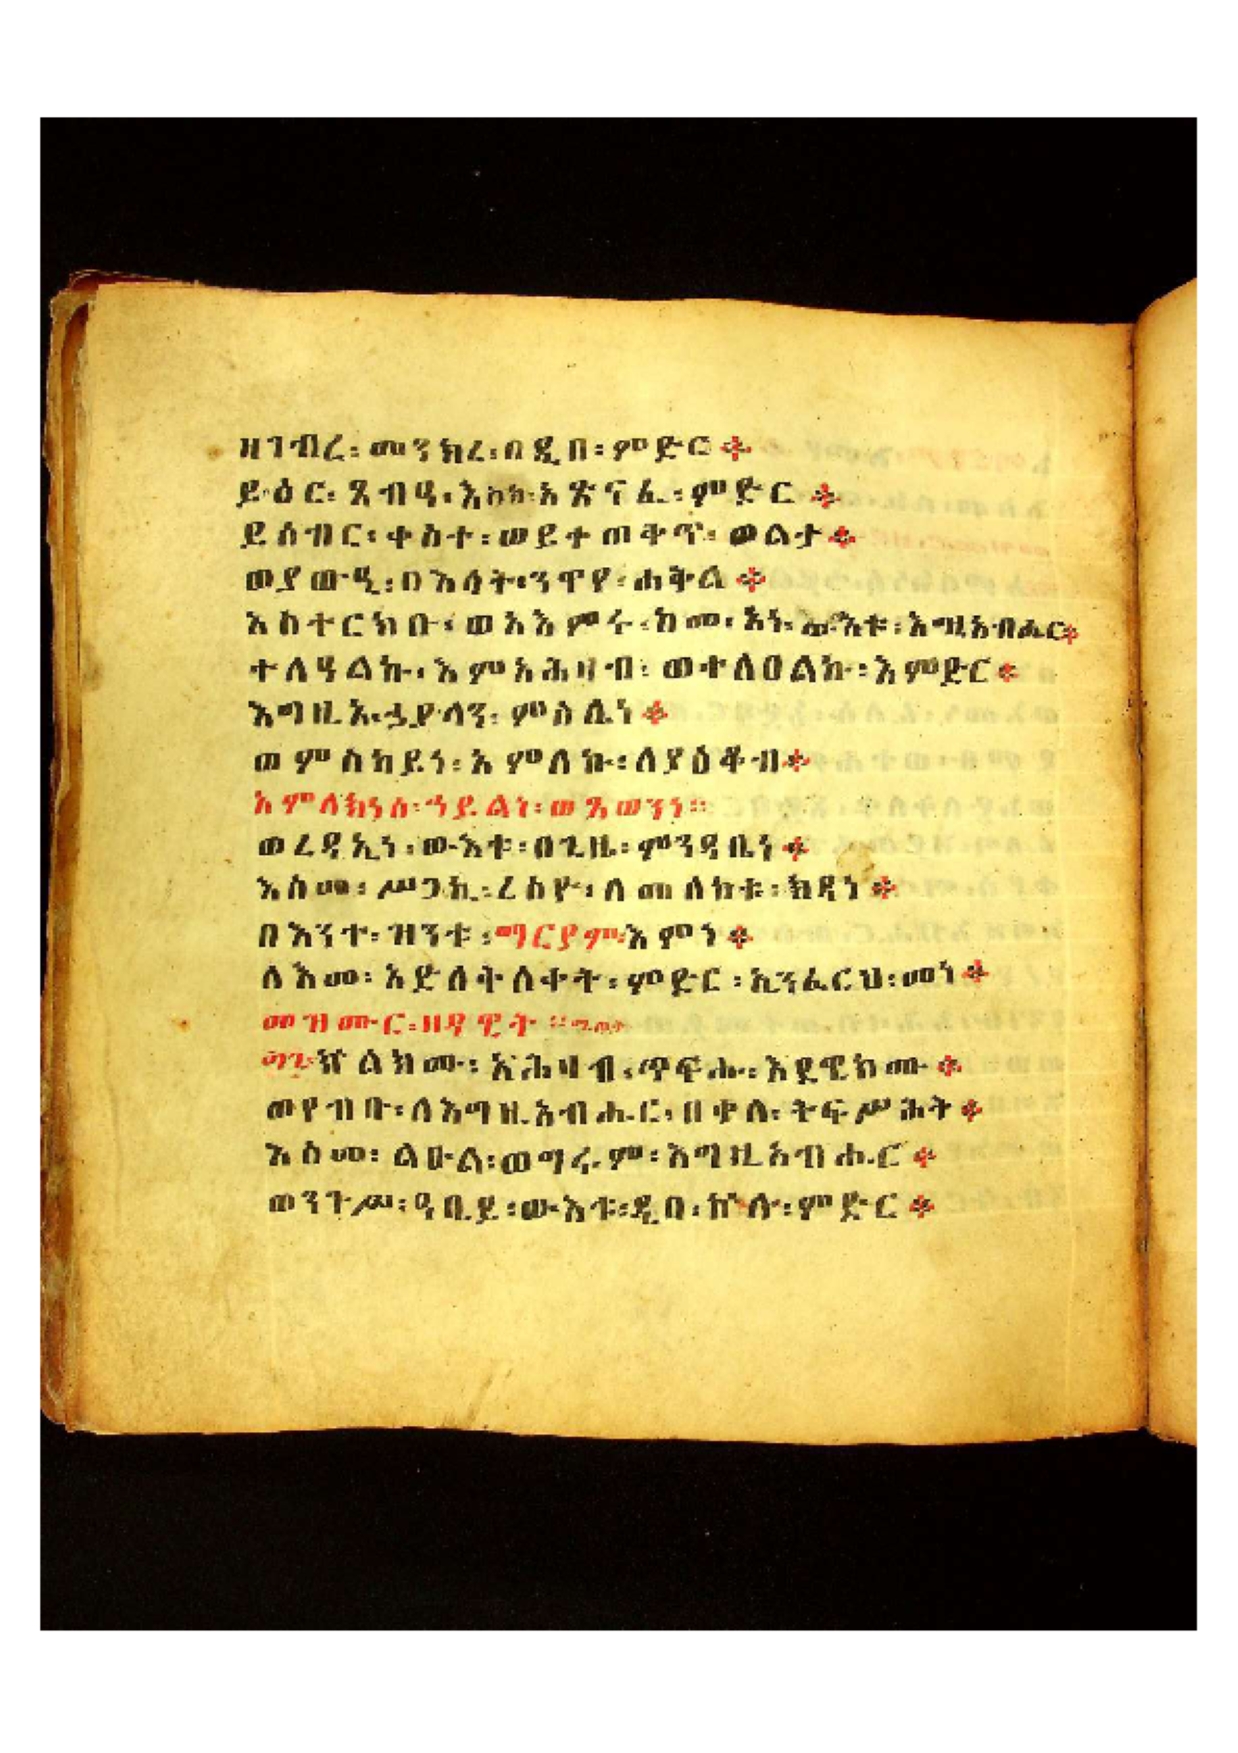 ዘገብረ፡ መንክረ፡ በዲበ፡ ምድር ።
ይስዕር፡ ፀብዓ፡ እስከ፡ አጽናፈ፡ ምድር ።
ይሰብር፡ ቀስተ፡ ወይተ ጠቅጥ፡ ወልታ ።
ወያውዒ፡ በእሳት፡ ንዋየ፡ ሐቅል ።
አስተርክቡ፡ ወአእምሩ፡ ከመ፡ አነ፡ ውእቱ፡ እግዚአብሔር ።
ተለዓልኩ፡ እምአሕዛብ፡ ወተለዐልኩ፡ እምድር ።
እግዚአ፡ ኃያላን፡ ምስሌነ ።
ወምስካይነ፡ አምላኩ፡ ለያዕቆብ ።
አምላክነሰ፡ ኀይልነ፡ ወጸወንነ ።
ወረዳኢነ፡ ውእቱ፡ በጊዜ፡ ምንዳቤነ ።
እስመ፡ ሥጋኪ፡ ረሰየ፡ ለመለኮቱ፡ ክዳነ ።
በእንተ፡ ዝንቱ፡ ማርያም፡ እምነ ።
ለእመ፡ አድለቅለቀት፡ ምድር፡ ኢንፈርህ፡ መነ ።
መዝሙር፡ ዘዳዊት ።
ኵልክሙ፡ አሕዛብ፡ ጥፍሑ፡ እደዊክሙ ።
ወየብቡ፡ ለእግዚአብሔር፡ በቃለ፡ ትፍሥሕት ።
እስመ፡ ልዑል፡ ወግሩም፡ እግዚአብሔር ።
ወንጉሥ፡ ዓቢይ፡ ውእቱ፡ ዲበ፡ ኵሉ፡ ምድር ።